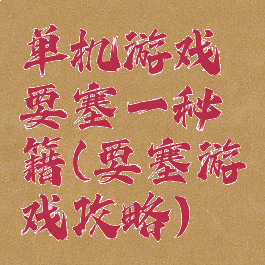 单机游戏
要塞一秘
籍(要塞游
戏攻略)